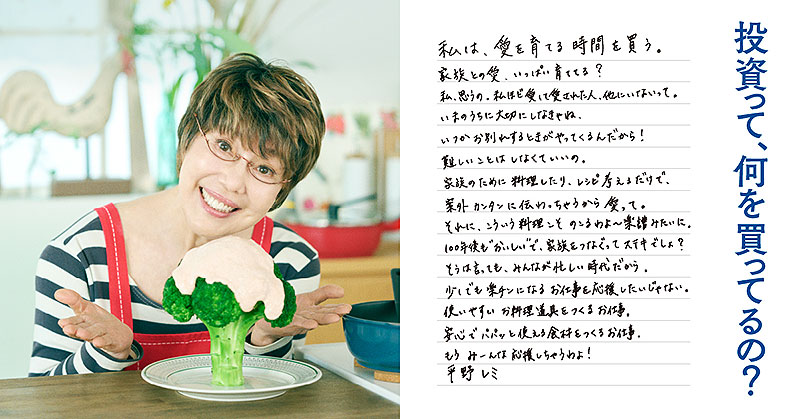 投資って、何を買ってるの?
私は、愛を育てる時間を買う。
家族との愛、いっぱい育ててる?
私、思うの。私ほど愛して愛された人、他にいないって。
いまのうちに大切にしなきゃね、
いつかお別れするときがやってくるんだから!
難しいことはしなくていいの。
家族のために料理したり、レシピ考えるだけで、
案外カンタンに伝わっちゃうから愛って。
それに、こういう料理こそのこるわよ〜楽譜みたいに。
100年後も"おいしい"で、家族をつなぐってステキでしょ?
そうは言っても、みんなが忙しい時代だから、
少しでも楽チンになるお仕事を応援したいじゃない。
使いやすいお料理道具をつくるお仕事。
安心でパパッと使える食材をつくるお仕事。
もうみーんな応援しちゃうわよ!
平野レミ